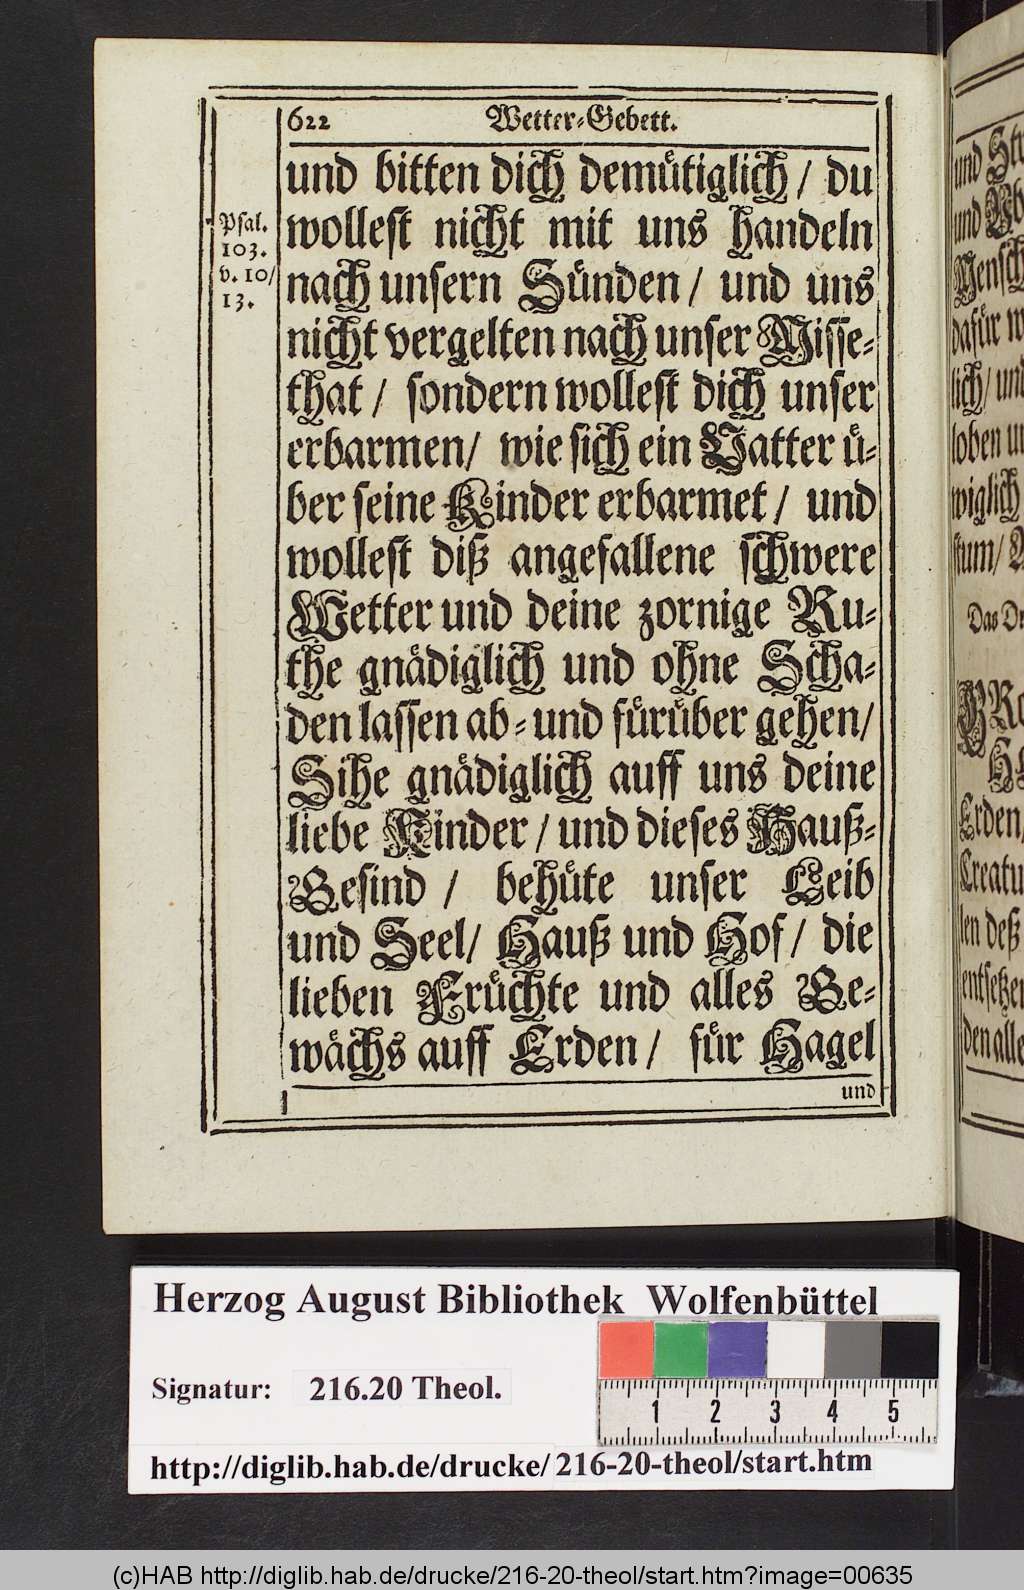 622 Wetter-Gebett.
Psal.
103.
v. 10/
13.
und bitten dich demuͤtiglich / du
wollest nicht mit uns handeln
nach unsern Suͤnden / und uns
nicht vergelten nach unser Misse-
that / sondern wollest dich unser
erbarmen / wie sich ein Vatter uͤ-
ber seine Kinder erbarmet / und
wollest diß angefallene schwere
Wetter und deine zornige Ru-
the gnaͤdiglich und ohne Scha-
den lassen ab- und fuͤruͤber gehen /
Sihe gnaͤdiglich auff uns deine
liebe Kinder / und dieses Hauß-
Gesind / behuͤte unser Leib
und Seel / Hauß und Hof / die
lieben Fruͤchte und alles Ge-
waͤchs auff Erden / fuͤr Hagel
und
und
und
Mensch
dafür
lich / und
loben
wiglich
stum /
Das
Erden
Creatu
len deß
entsetzen
den alle
Herzog August Bibliothek Wolfenbüttel
Signatur: 216.20 Theol.
1 2 3 4 5
http://diglib.hab.de/drucke/216-20-theol/start.htm
(c)HAB http://diglib.hab.de/drucke/216-20-theol/start.htm?image=00635